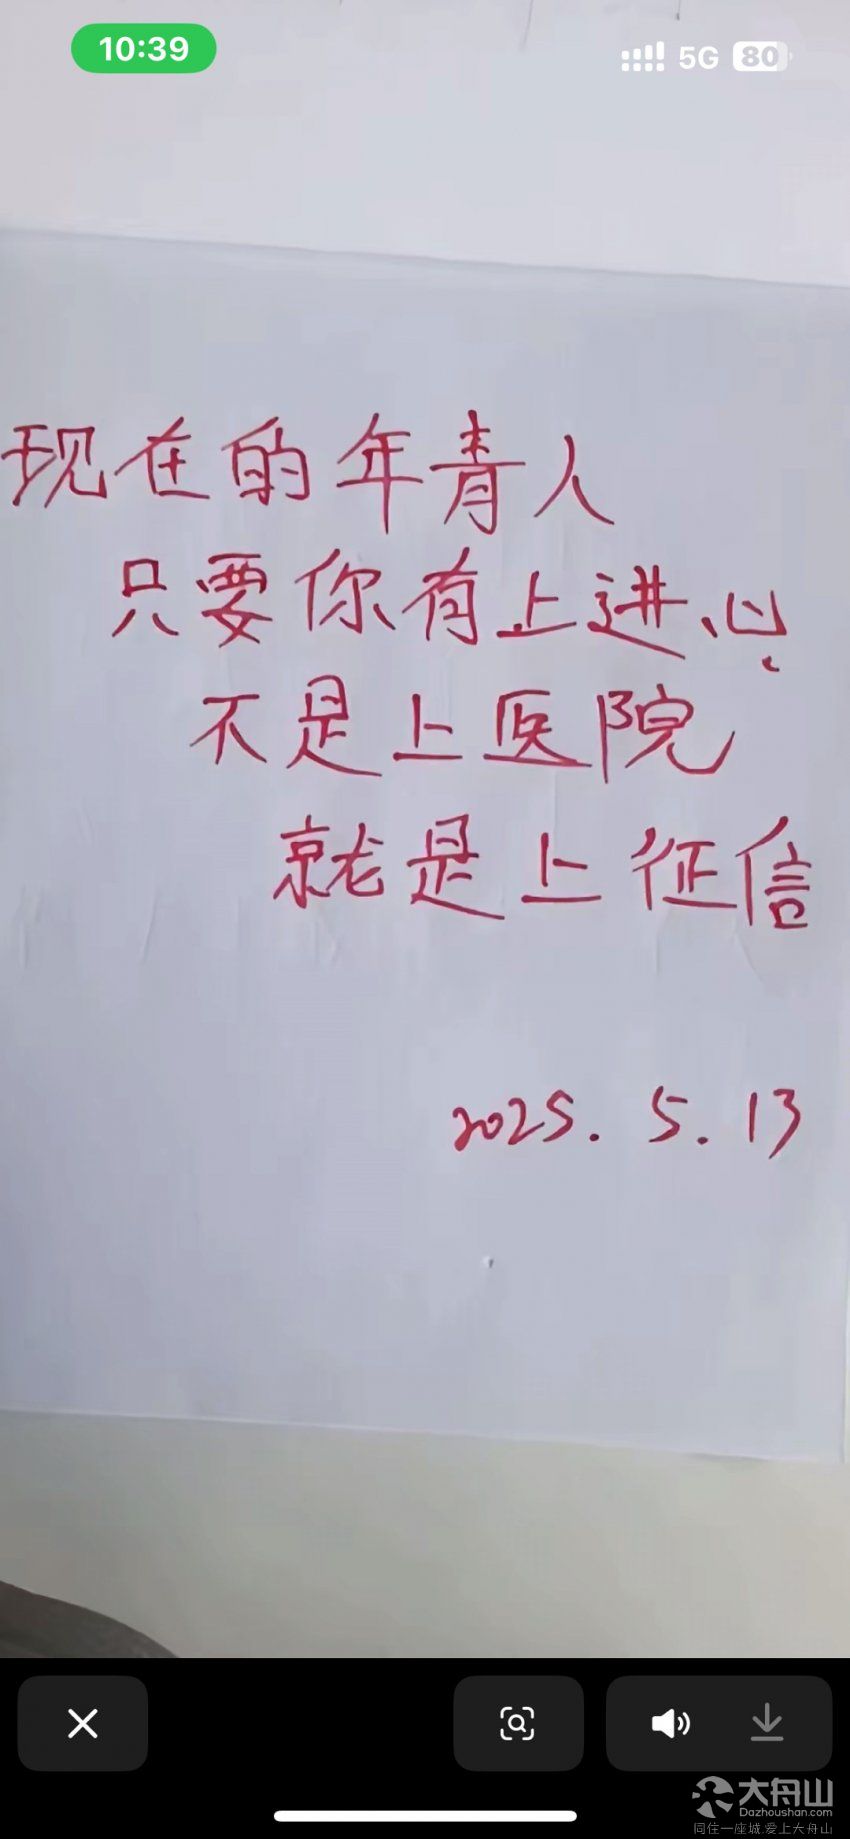 10:39
5G 80
现在的年青人
只要你有上进心
不是上医院
就是上征信
2025.5.13
大舟山
Dazhoushan.com
同住一座城.爱上大舟山